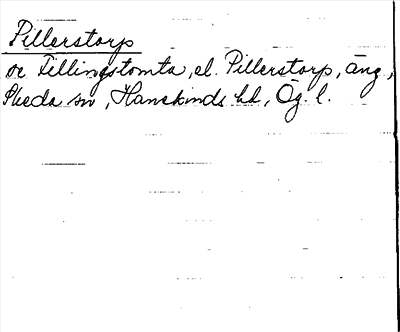 Pillerstorp
oc Tellingstomta, el. Pillerstorp, äng,
Skeda sn, Hanekinds hd, Ög. l.